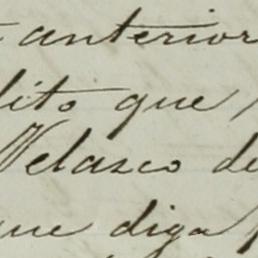 anterior
que
Velasco de
que diga